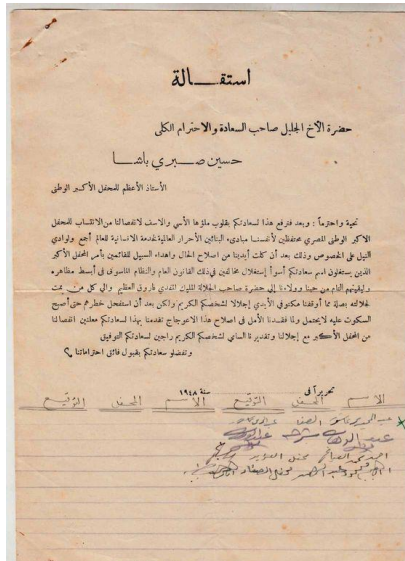 استقالة
حضرة الأخ الجليل صاحب السعادة والاحترام الكلى
حسين صبري باشا
الأستاذ الأعظم للمحفل الأكبر الوطنى
تحية واحتراماً ؛ وبعد فنرفع هذا لسعادتكم بقلوب ملؤها الأسى والاسف لانفصالنا من الانتساب للمحفل
الاكبر الوطنى المصرى محتفظين لأنفسنا مبادىء البنائين الأحرار العالمية لخدمة الانسانية للعالم أجمع ولوادى
النيل على الخصوص وذلك بعد أن كلت أيدينا من اصلاح الحال واهداء السبيل للقائمين بأمر المحفل الأكبر
الذين يستغلون اسم سعادتكم أسوأ إستغلال مخالفين فى ذلك القانون العام والنظام الماسونى فى أبسط مظاهره
التام من حبنا وولاءنا إلى حضرة صاحب الجلالة الملك المفدى فاروق المعظم والى كل من يمت
لجلالته بصلة مما أوقفنا مكتوفى الأيدى إجلالا لشخصكم الكريم ولكن بعد أن استفحل خطرهم حتى أصبح
السكوت عليه لا يحتمل ولما فقدنا الأمل فى اصلاح هذا الاعوجاج تقدمنا بهذا لسعادتكم معلنين انفصالنا
من المحفل الأكبر مع إجلالنا وتقديرنا السامى لشخصكم الكريم راجين لسعادتكم التوفيق
وتفضلو سعادتكم بقبول فائق احتراماتنا ؟
تحريراً فى سنة ١٩٤٨
الاسم المحفل التوقيع الاسم المحفل التوقيع